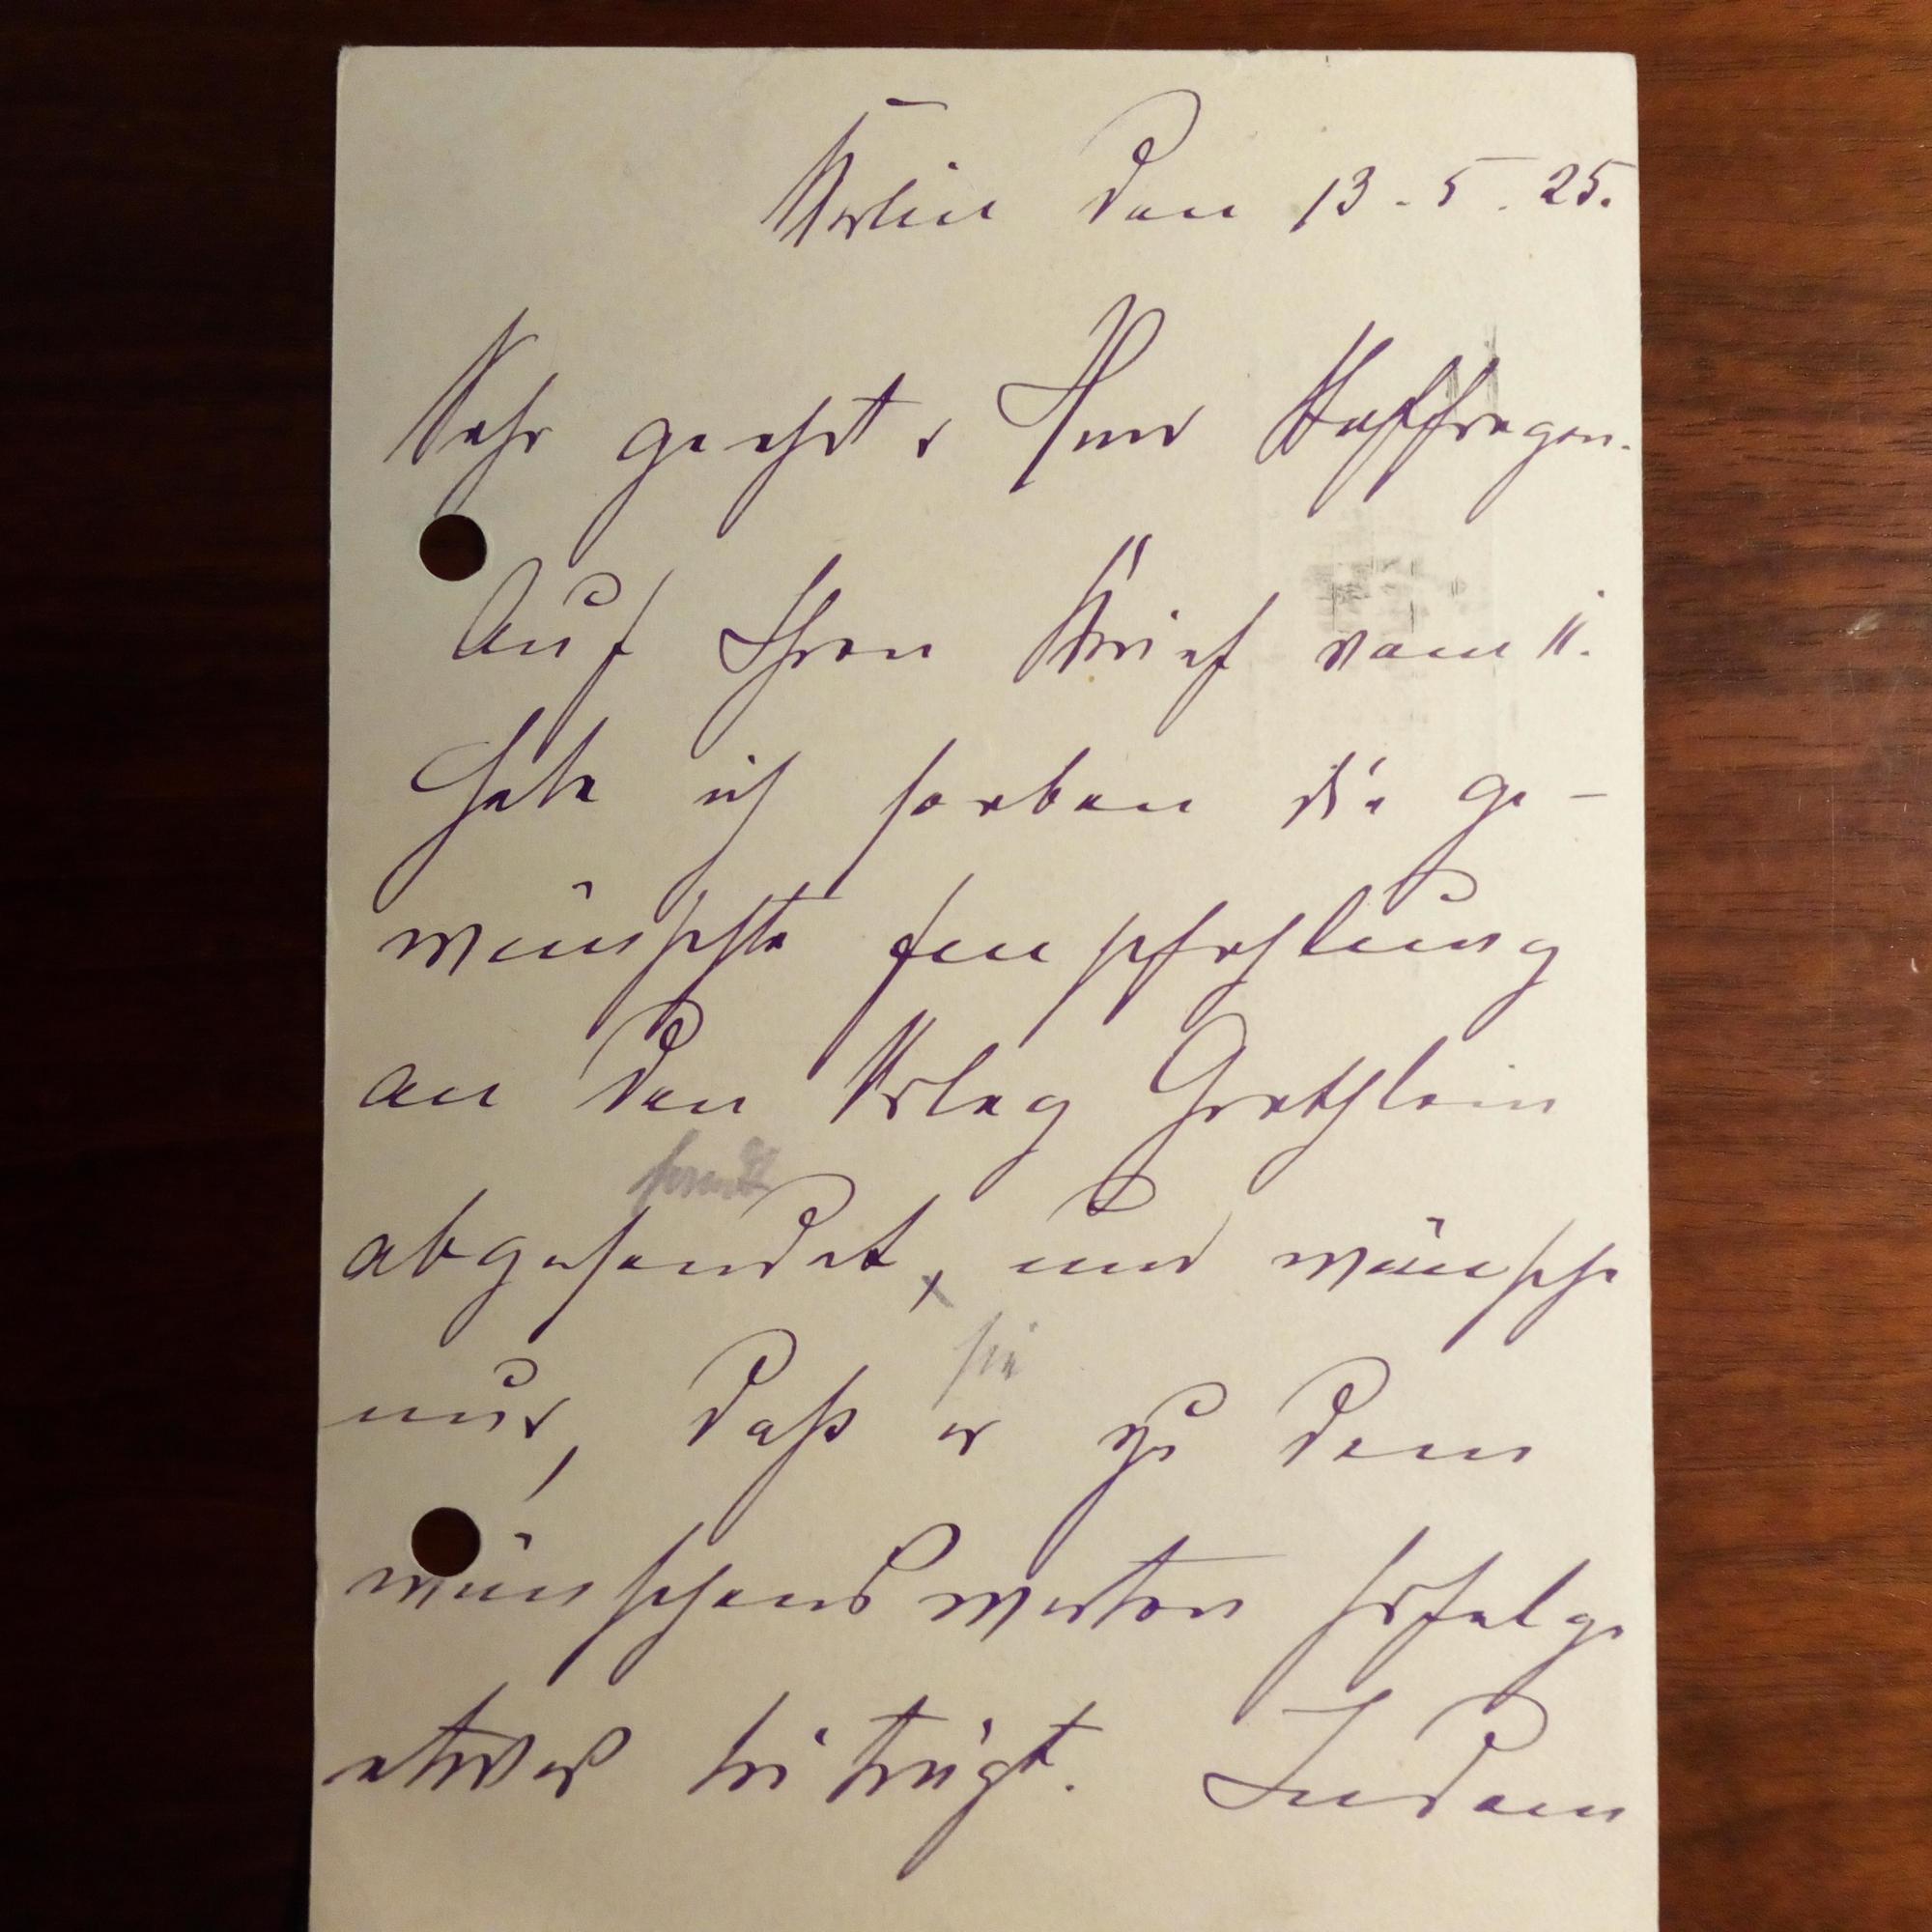 Berlin den 13. 5. 25.
Sehr geehrter Herr
Auf Ihren Brief vom 11.
habe ich soeben die ge-
wünschte Empfehlung
an den Verlag Grethlein
abgesendet, und wünsche
sie
nur, daß er zu dem
wünschenswerten Erfolge
etwas beiträgt. Indem